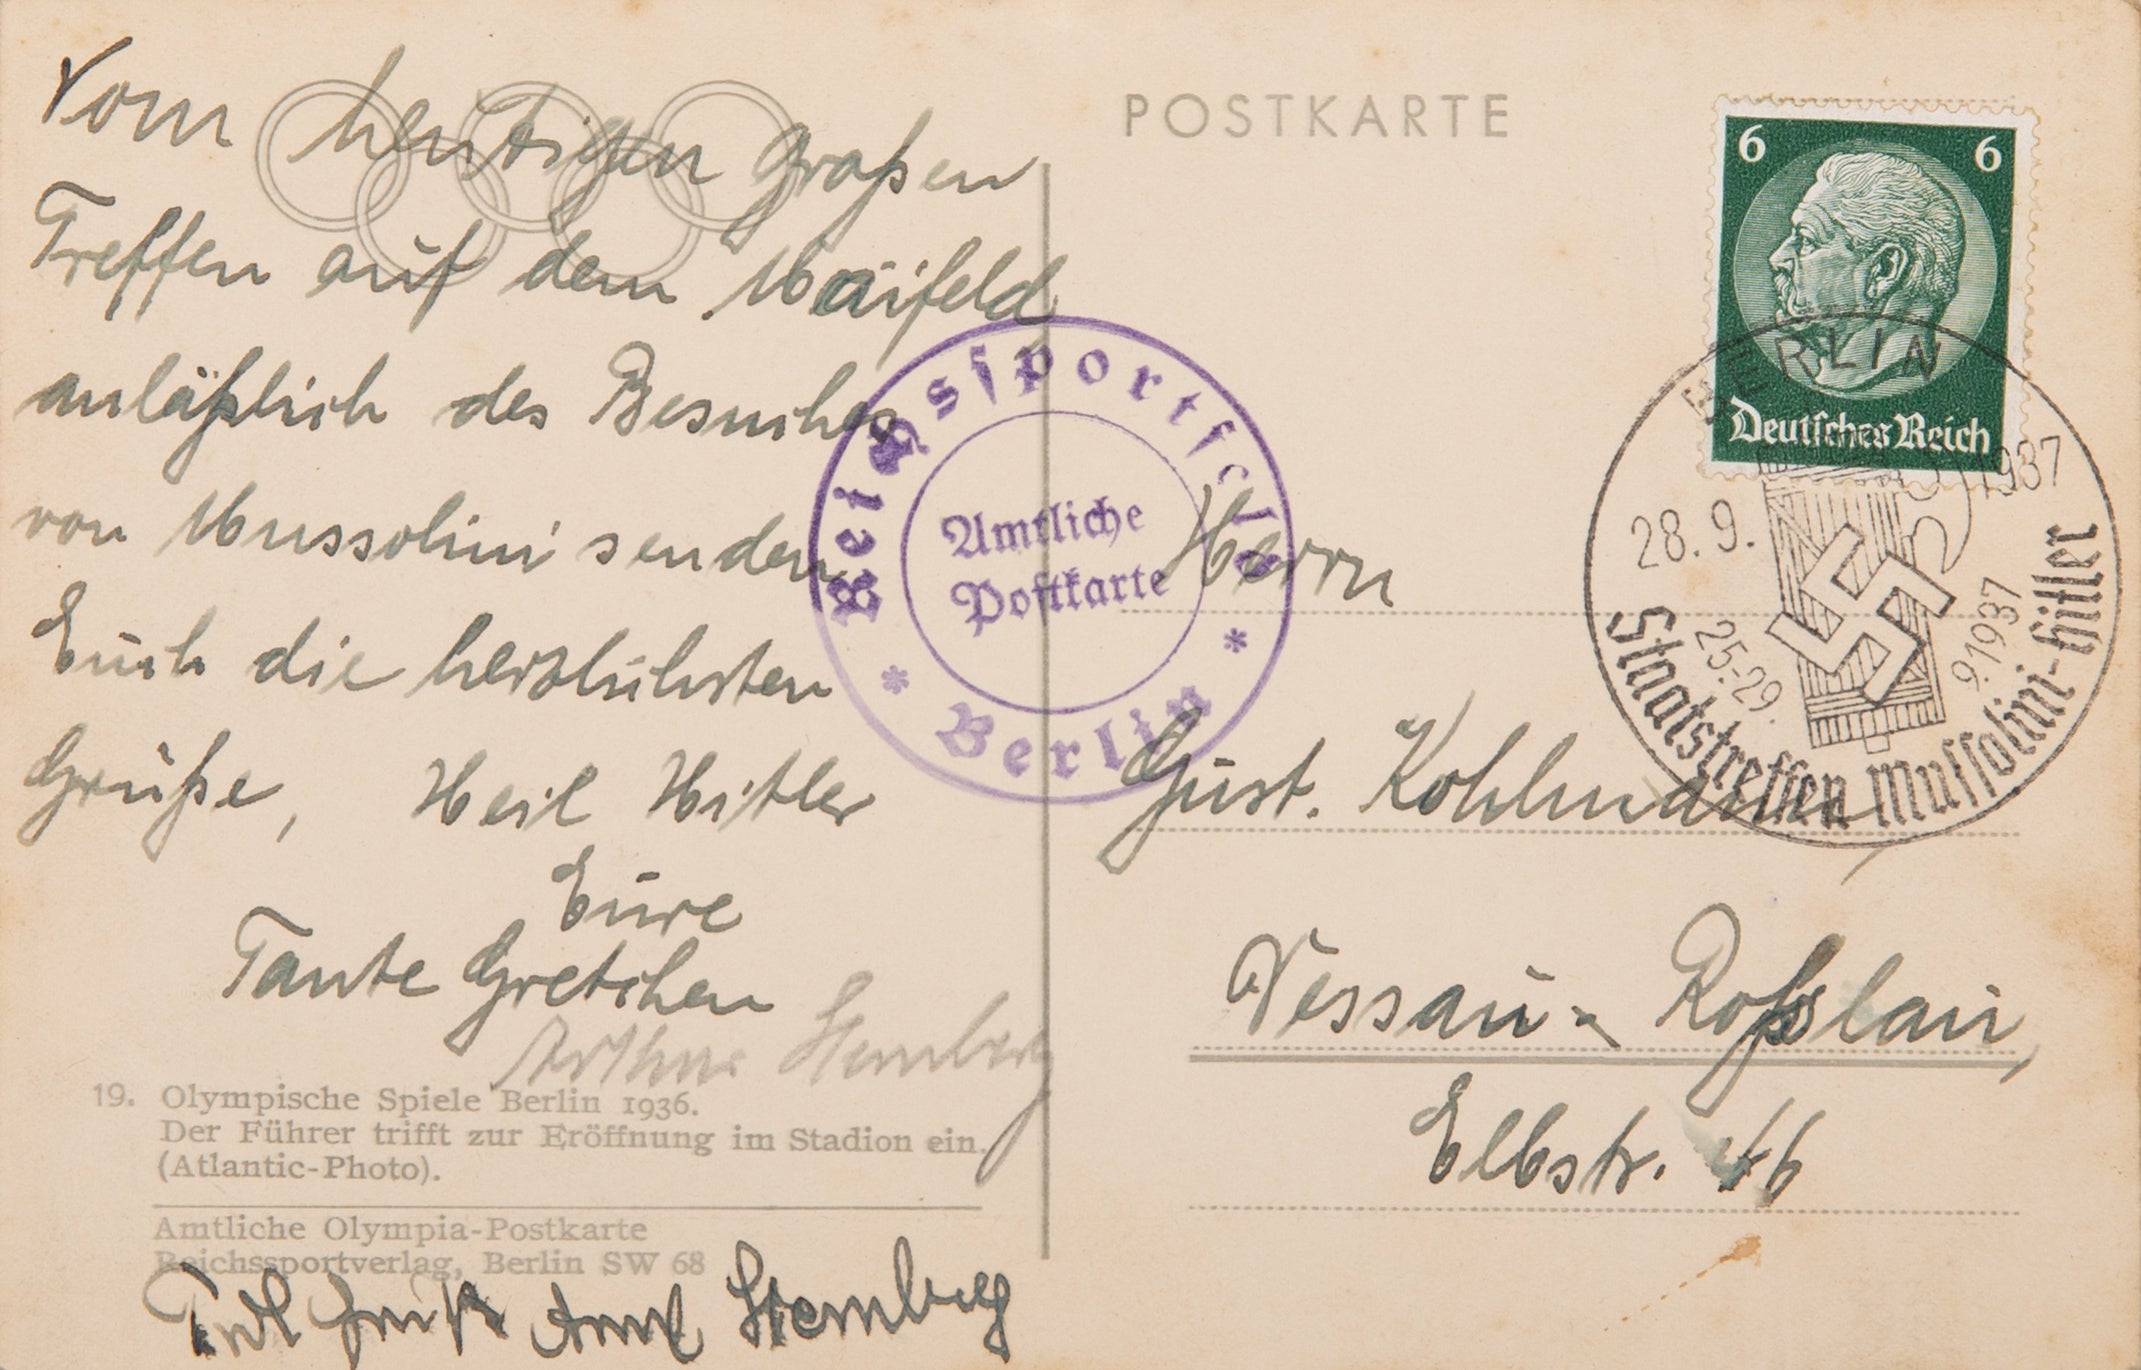 Vom heutigen großen
Treffen auf dem Maifeld
anläßlich des Besuches
von Mussolini senden
Euch die herzlichsten
Grüße, Heil Hitler
Eure
Tante Gretchen
Arthur Sternberg
19. Olympische Spiele Berlin 1936.
Der Führer trifft zur Eröffnung im Stadion ein.
(Atlantic-Photo).
Amtliche Olympia-Postkarte
Reichssportverlag, Berlin SW 68
Sternberg
POSTKARTE
Reichssportfeld
Amtliche
Postkarte
* Berlin *
6 6
Deutsches Reich
BERLIN
28.9. 1937
25.-29. 9.1937
Staatstreffen Mussolini-Hitler
Herrn
Gust. Kohlmann
Dessau - Roßlau,
Elbstr. 46